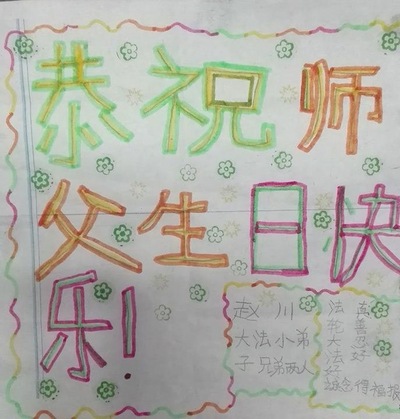 恭祝师
父生日快
乐!
赵 川
大法小弟
子 兄弟两人
法轮大法好
真善忍好
誠念得福报